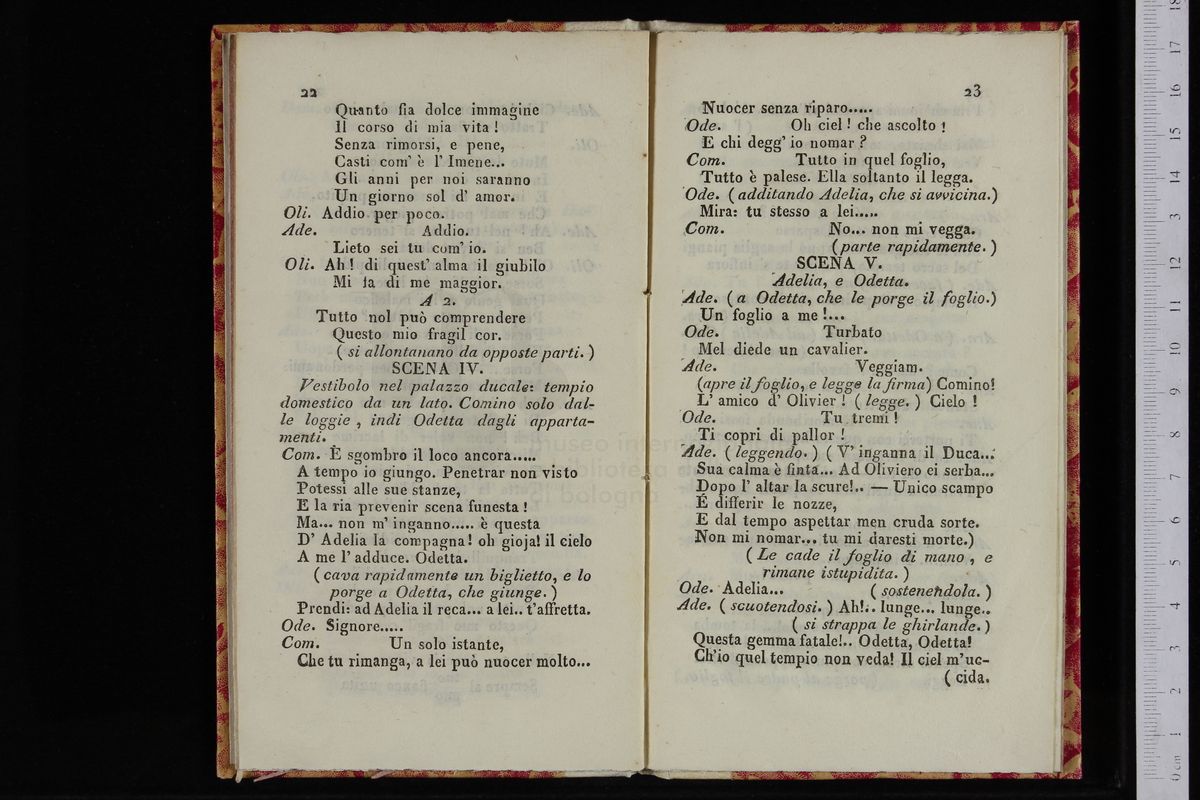 22
Quanto fia dolce immagine
Il corso di mia vita!
Senza rimorsi, e pene,
Casti com' è l' Imene...
Gli anni per noi saranno
Un giorno sol d' amor.
Oli. Addio per poco.
Ade. Addio.
Lieto sei tu com' io.
Oli. Ah! di quest' alma il giubilo
Mi fa di me maggior.
A 2.
Tutto nol può comprendere
Questo mio fragil cor.
( si allontanano da opposte parti. )
SCENA IV.
Vestibolo nel palazzo ducale: tempio
domestico da un lato. Comino solo dal-
le loggie , indi Odetta dagli apparta-
menti.
Com. È sgombro il loco ancora.....
A tempo io giungo. Penetrar non visto
Potessi alle sue stanze,
E la ria prevenir scena funesta!
Ma... non m' inganno..... è questa
D' Adelia la compagna! oh gioja! il cielo
A me l' adduce. Odetta.
( cava rapidamente un biglietto, e lo
porge a Odetta, che giunge. )
Prendi: ad Adelia il reca... a lei.. t'affretta.
Ode. Signore.....
Com. Un solo istante,
Che tu rimanga, a lei può nuocer molto...
23
Nuocer senza riparo.....
Ode. Oh ciel! che ascolto!
E chi degg' io nomar?
Com. Tutto in quel foglio,
Tutto è palese. Ella soltanto il legga.
Ode. ( additando Adelia, che si avvicina.)
Mira: tu stesso a lei.....
Com. No... non mi vegga.
(parte rapidamente. )
SCENA V.
Adelia, e Odetta.
Ade. ( a Odetta, che le porge il foglio.)
Un foglio a me!...
Ode. Turbato
Mel diede un cavalier.
Ade. Veggiam.
(apre il foglio, e legge la firma) Comino!
L' amico d' Olivier! ( legge. ) Cielo !
Ode. Tu tremi!
Ti copri di pallor!
Ade. ( leggendo. ) ( V' inganna il Duca...
Sua calma è finta... Ad Oliviero ei serba...
Dopo l' altar la scure!.. — Unico scampo
É differir le nozze,
E dal tempo aspettar men cruda sorte.
Non mi nomar... tu mi daresti morte.)
( Le cade il foglio di mano , e
rimane istupidita. )
Ode. Adelia... ( sostenendola. )
Ade. ( scuotendosi. ) Ah!.. lunge... lunge..
( si strappa le ghirlande. )
Questa gemma fatale!.. Odetta, Odetta!
Ch'io quel tempio non veda! Il ciel m'uc-
( cida.